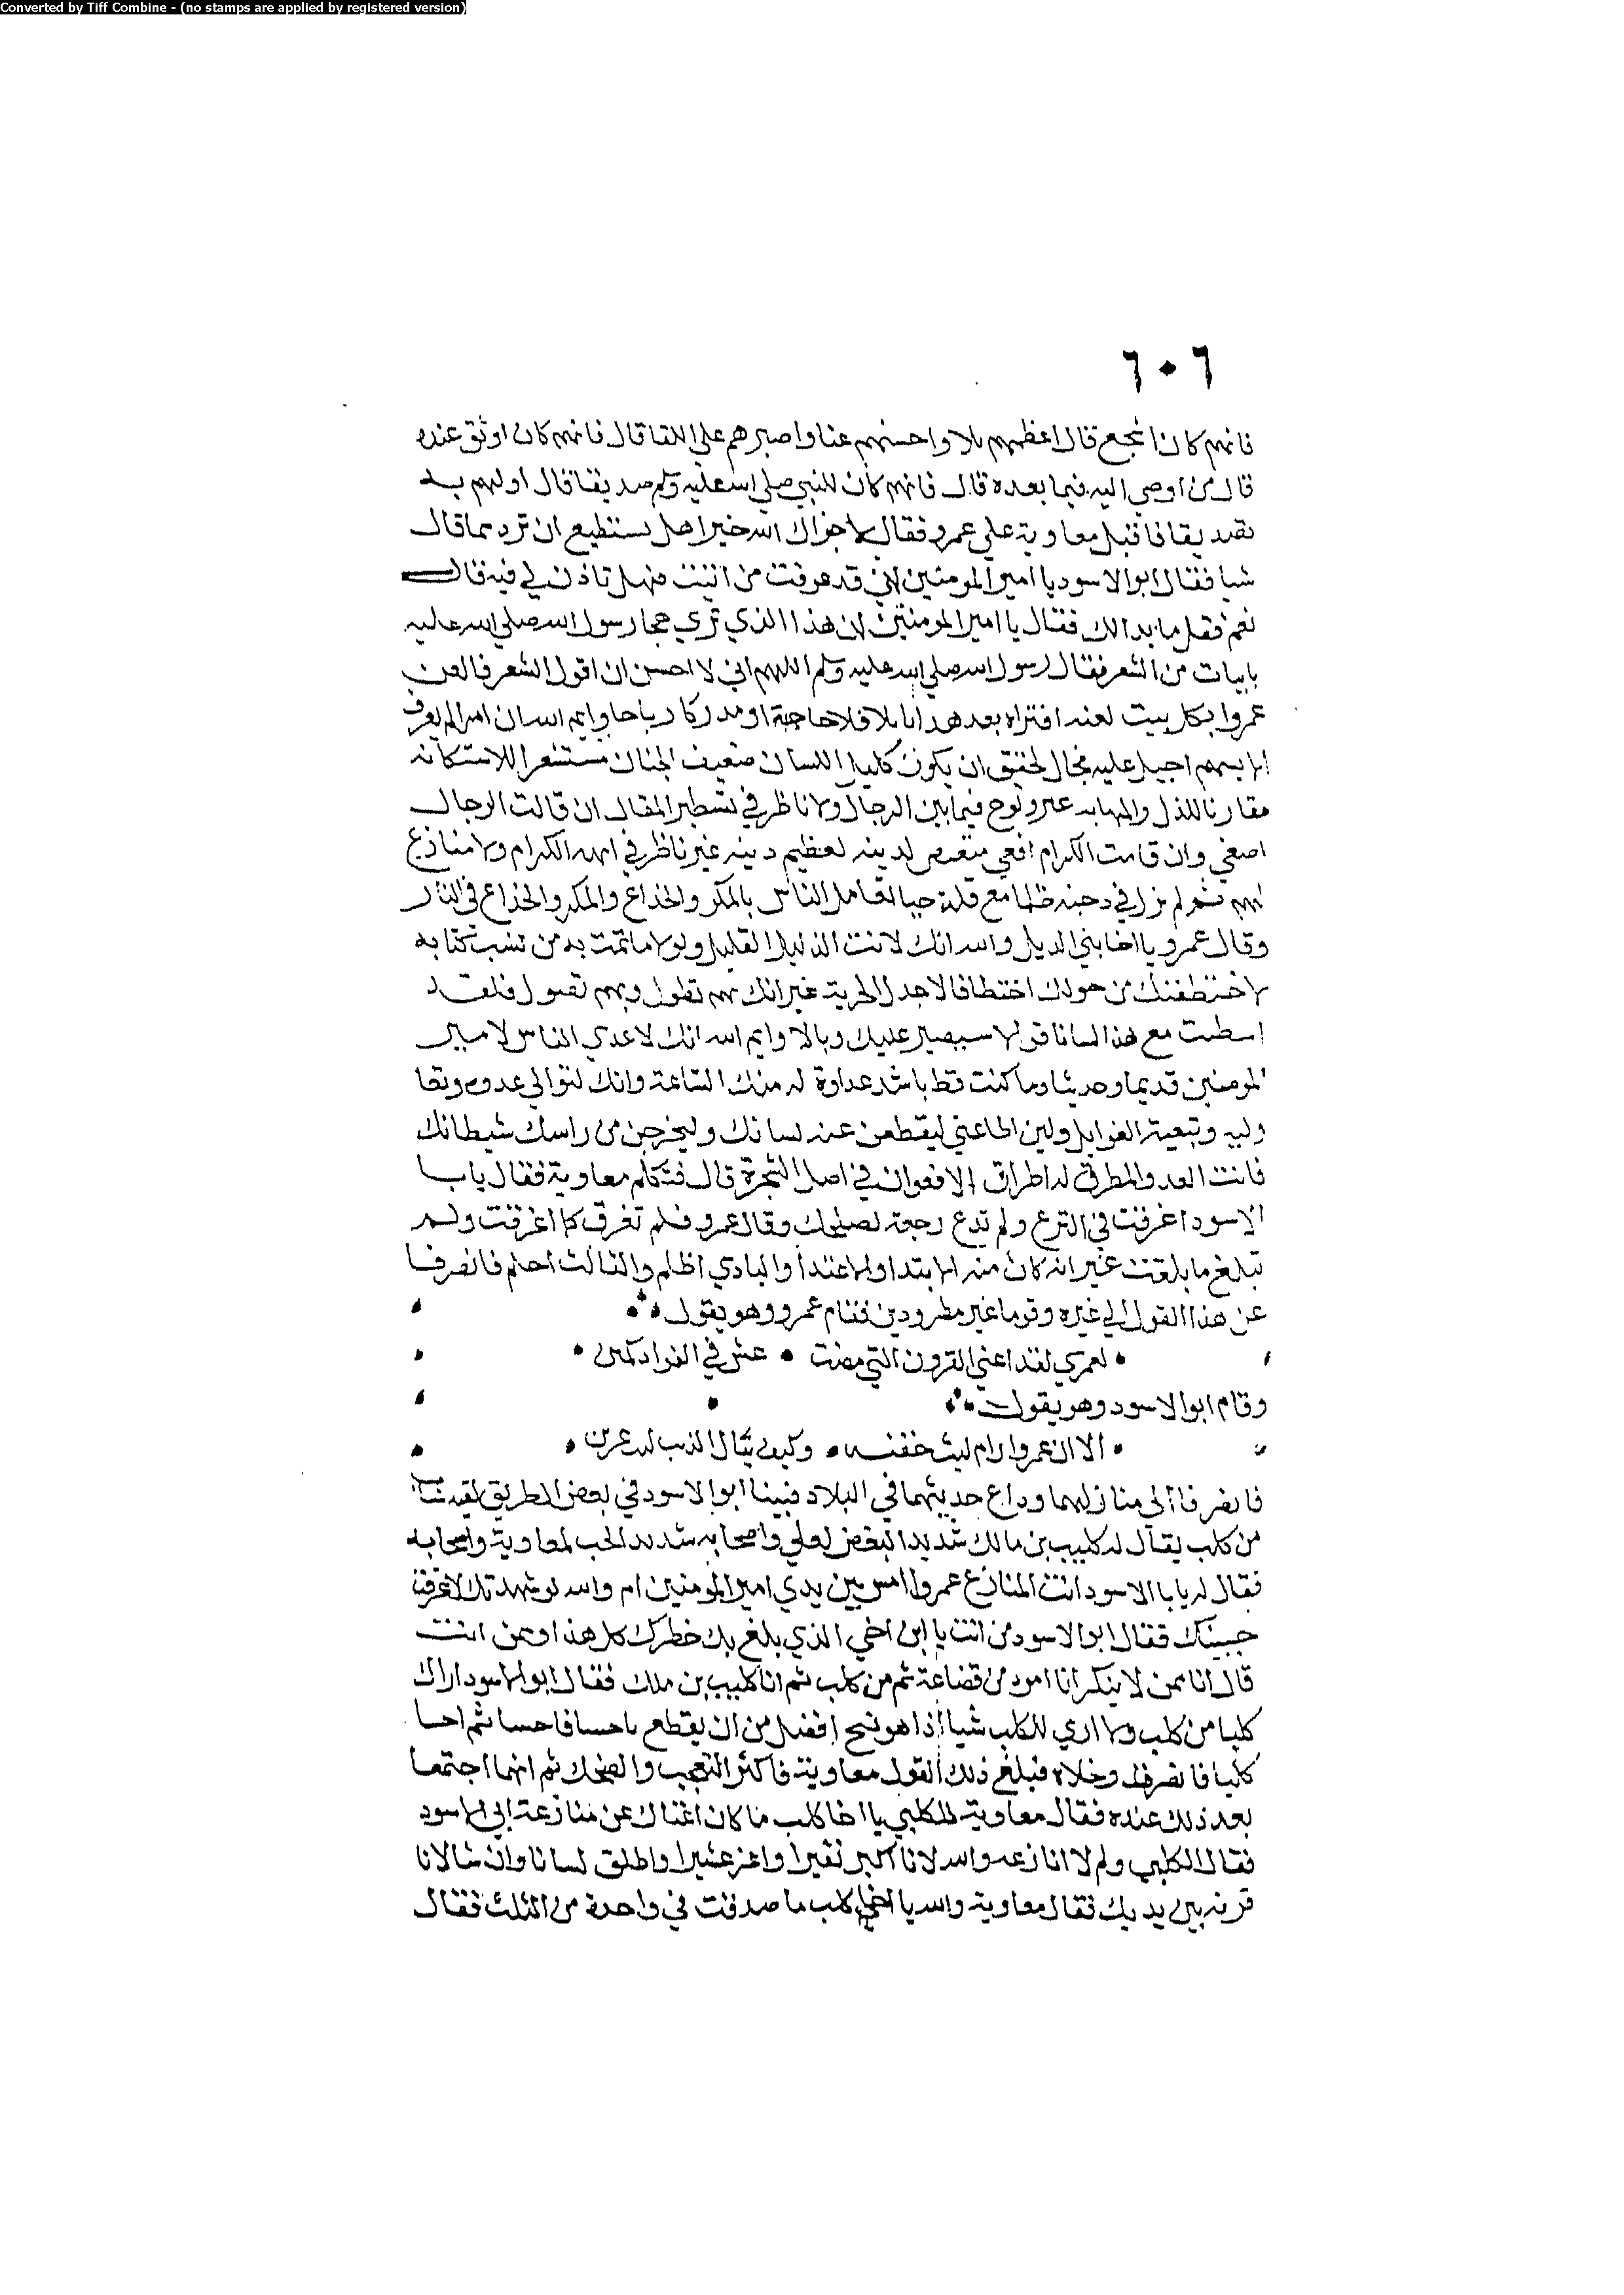 Converted by Tiff Combine - (no stamps are applied by registered version)
٦٠٦
فانهم كان اشجع قال اعظمهم بلا واحسنهم عنا واصبرهم علي اللقا قال فانهم كان اوثق عنده
قال من اوصي اليه فيما بعده قال فانهم كان للنبي صلي الله عليه وسلم صديقا قال اولهم به
تصديقا فاقبل معاوية علي عمرو فقال لا جزاك الله خيرا هل تستطيع ان ترد مما قال
شيا فقال ابو الاسود يا امير المومنين اني قد عرفت من اتيت فهل تاذن لي فيه قال
نعم فقل ما بدالك فقال يا امير المومنين ان هذا الذي تري هجا رسول الله صلي الله عليه
بابيات من الشعر فقال رسول الله صلي الله عليه وسلم اللهم اني لا احسن ان اقول الشعر فالعن
عمروا بكل بيت لعنه افتراه بعد هذا نايلا فلاحا او مدركا رباحا وايم الله ان امرا لم يعرف
الا بسهم اجيل عليه فجال لحقيق ان يكون كليل اللسان ضعيف الجنان مستشعرا للاستكانه
مقارنا للذل والمهابه غير ولوج فيما بين الرجال ولا ناظر في تسطير المقال ان قالت الرجال
اصغي وان قامت الكرام اقعي متعيص لدينه لعظيم دينه غير ناظر في ابهه الكرام ولا منازع
لهم ثم لم يزل في دجنه ظلما مع قلة حيا لعامل الناس بالمكر والخداع والمكر والخداع في النار
وقال عمرو يا اخا بني الديل والله انك لانت الذليل القليل ولولا ما تمت به من نسب كنانه
لاختطفتك من حولك اختطاف الاجدل الحرية غير انك بهم تطول وبهم تصول فلقد
اسطيت مع هذا لسانا قوالا سيصير عليك وبالا وايم الله انك لاعدي الناس لامير
المومنين قديما وحديثا وما كنت قط باشد عداوة له منك الساعة وانك لتوالي عدوه وتعا
وليه وتبغيه الغوايل ولين اطاعني ليقطعن عنه لسانك وليخرجن من راسك شيطانك
فانت العدو المطرق له اطراق الافعوان في اصل الشجرة قال فتكلم معاوية فقال يابا
الاسود اغرقت في النزع ولم تدع رجعة لصلحك وقال عمرو فلم تغرق كما اغرقت ولم
تبلغ ما بلغت غير انه كان منه الابتدا والاعتدا والبادي اظلم والثالث احلم فانصرفا
عن هذا القول الي غيره وقوما غير مطرودين فقام عمرو وهو يقول
لعمري لقد اعني القرون التي مضت • غش في الفواد كمين
وقام ابو الاسود وهو يقول
الا ان عمروا رام ليث خفيه • وكيف ينال الذيب ليث عرين
فانصرفا الي منازلهما وذاع حديثهما في البلاد فبينا ابو الاسود في بعض الطريق لقيه شاب
من كلب يقال له كليب بن مالك شديد البغض لعلي واصحابه شديد الحب لمعاوية واصحابه
فقال له يابا الاسود انت المنازع عمروا امس بين يدي امير المومنين ام والله لو شهدتك لاعرقت
جبينك فقال ابو الاسود من انت يا ابن اخي الذي بلغ بك خطرك كل هذا وممن انت
قال انا ممن لا ينكر انا امرو من قضاعة ثم من كلب ثم انا كليب بن ملك فقال ابو الاسود اراك
كلبا من كلب ولا اري للكلب شيا اذا هو نبح افضل من ان يقطع باخسا فاخسا ثم اخسا
كليبا فانصرفا وخلاه فبلغ ذلك القول معاوية فاكثر التعجب والضحك ثم انهما اجتمعا
بعد ذلك عنده فقال معاوية للكلبي يا اخا كلب ما كان اغناك عن منازعة ابي الاسود
فقال الكلبي ولم لا انازعه والله لانا اكثر نفيرا واعز عشيرا واطلق لسانا وان شا لانا
فرنه بين يديك فقال معاوية والله يا اخي كلب ما صدقت في واحدة من الثلث فقال